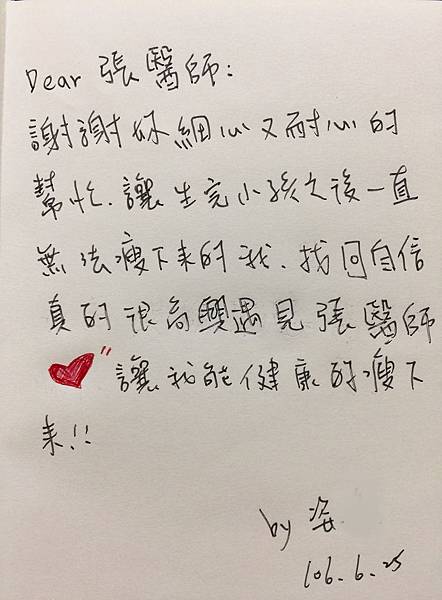 Dear 張醫師:
謝謝妳細心又耐心的
幫忙.讓生完小孩之後一直
無法瘦下來的我.找回自信
真的很高興遇見張醫師
"讓我能健康的瘦下
來!!
by 姿
106.6.25